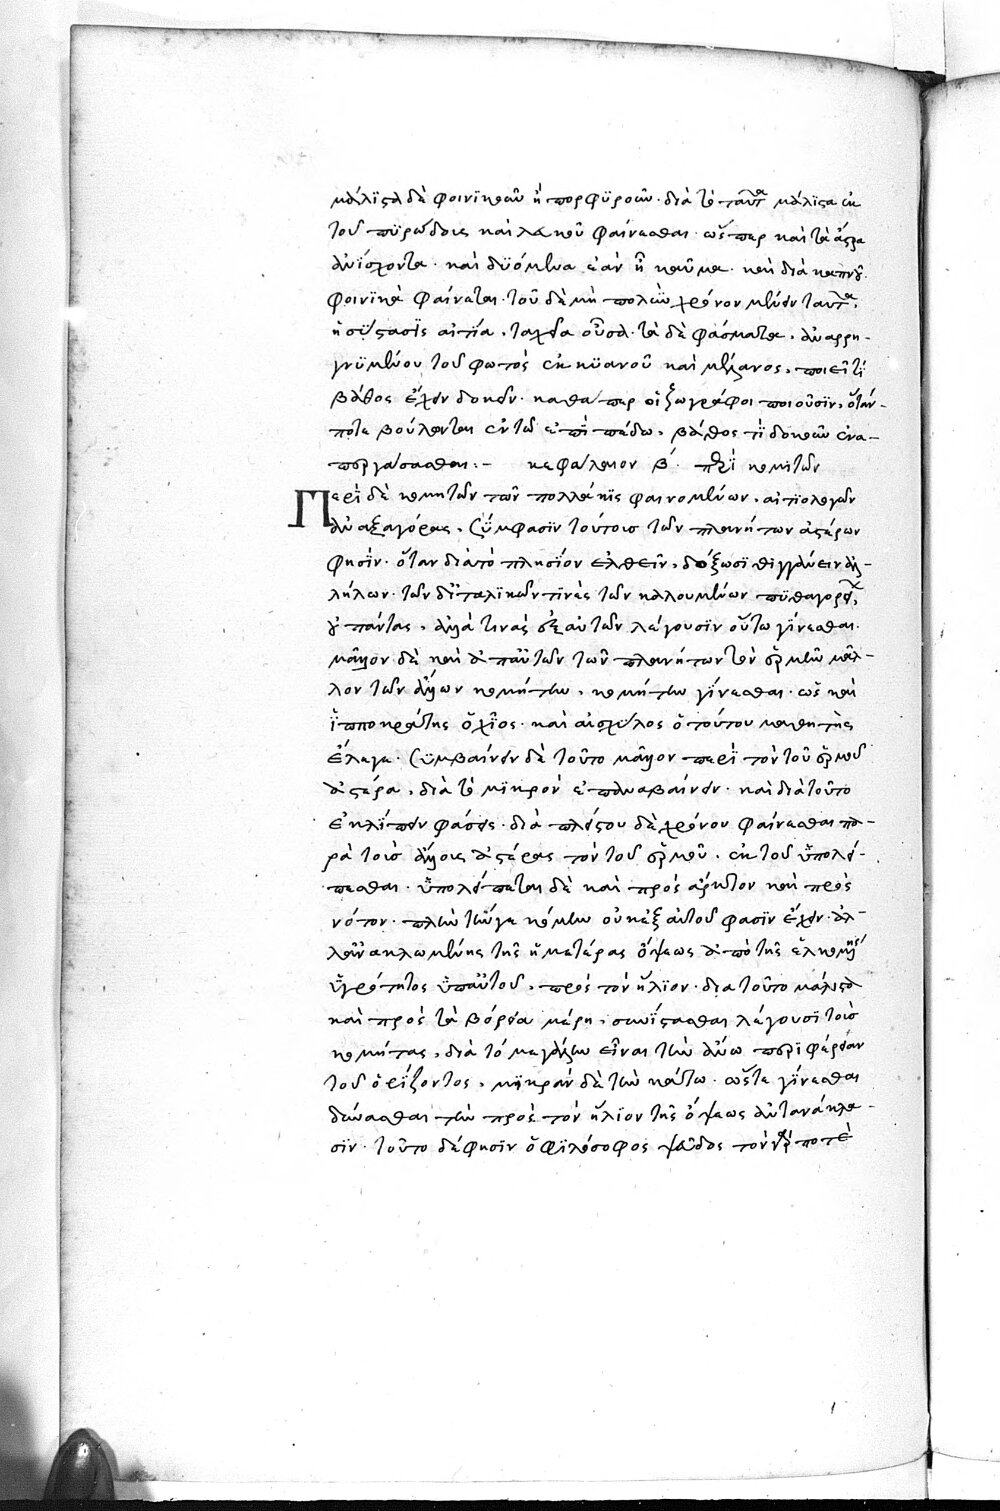 μάλϊστα δὲ φοινϊκοῦν ἢ πορφϋροῦν· διὰ τὸ ταῦτα μάλϊστα ἐκ
τοῦ πϋρώδους καὶ λευκοῦ φαίνεσθαι· ὥσπερ καὶ τὰ ἄστρα
ἀνίσχοντα· καὶ δϋόμενα ἐὰν ᾖ καῦμα· καὶ διὰ καπνοῦ
φοινϊκὰ φαίνεται· τοῦ δὲ μὴ πολὺν χρόνον μένειν ταῦτα,
ἡ σύστασϊς αἰτία, ταχεῖα οὖσα· τὰ δὲ φάσματα, ἀναρρη-
γνϋμένου τοῦ φωτὸς ἐκ κϋανοῦ καὶ μέλανος, ποιεῖ τϊ
βάθος ἔχειν δοκεῖν· καθάπερ οἱ ζωγράφοι ποιοῦσϊν, ὅταν
ποτε βούλωνται ἐν τῷ ἐπϊπέδω, βάθος τϊ δοκοῦν ἐνα-
περγάσασθαι:– κεφάλαιον β΄. περὶ κομητῶν
Περὶ δὲ κομητῶν τῶν πολλάκϊς φαινομένων, αἰτιολογῶν
ἀναξαγόρας, σύμφασϊν τούτοις τῶν πλανήτων ἀστέρων
φησϊν· ὅταν διὰ τὸ πλησίον ἐλθεῖν, δόξωσϊ θιγγάνειν ἀλ-
λήλων· τῶν δ' ἰταλϊκῶν τϊνὲς τῶν καλουμένων πϋθαγορείων,
οὐ πάντας, ἀλλά τινας ἐξ αὐτῶν λέγουσϊν οὕτω γίνεσθαι·
μᾶλλον δὲ καὶ ἀπ' αὐτῶν τῶν πλανήτων τὸν ἑρμῆν μᾶλ-
λον τῶν ἄλλων κομήτην, κομήτην γίνεσθαι· ὡς καὶ
ἱπποκράτης ὁ χῖος· καὶ αἰσχύλος ὁ τούτου μαθητὴς
ἔλεγε· σϋμβαίνειν δὲ τοῦτο μᾶλλον περὶ τὸν τοῦ ἑρμοῦ
ἀστέρα, διὰ τὸ μϊκρὸν ἐπαναβαίνειν· καὶ διὰ τοῦτο
ἐκλίπειν φάσεις· διὰ πλείστου δὲ χρόνου φαίνεσθαι πα-
ρὰ τοὺς ἄλλους ἀστέρας τὸν τοῦ ἑρμοῦ, ἐκ τοῦ ὑπολεί-
πεσθαι· ὑπολείπεται δὲ καὶ πρὸς ἄρκτον καὶ πρὸς
νότον· πλὴν τήν γε κόμην οὐκ ἐξ αὐτοῦ φασϊν ἔχειν· ἀλ-
λ' ἀνακλωμένης τῆς ἡμετέρας ὄψεως ἀπὸ τῆς ἑλκομένης
ὑγρότητος ὑπ' αὐτοῦ, πρὸς τὸν ἥλϊον· δια τοῦτο μάλιστα
καὶ πρὸς τὰ βόρεια μέρη, συνϊστασθαι λέγουσϊ τοὺς
κομήτας, διὰ τὸ μεγάλην εἶναι τὴν ἄνω περϊφέρειαν
τοῦ ὁρίζοντος, μϊκρὰν δὲ τὴν κάτω· ὥστε γίνεσθαι
δύνασθαι τὴν πρὸς τὸν ἥλϊον τῆς ὄψεως ἀντανάκλα-
σϊν· τοῦτο δέ φησϊν ὁ φϊλόσοφος ψεῦδος ποτὲ